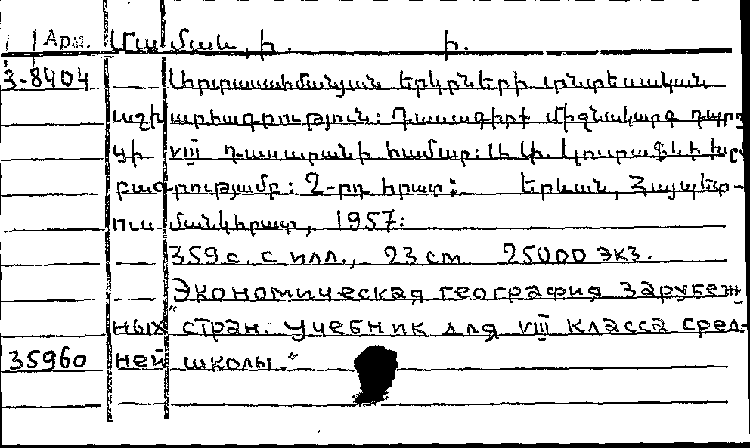 Арм. Մամման, ի. ի.
3-8404 Արտասահմանյան երկրների տնտեսական
աշխարհագրություն: Դասագիրք միջնակարգ դպրո
ցի VIII դասարանի համար: խմ
բագրությամբ: 2-րդ հրատ: Երևան, Հայպետ-
ուսմանկհրատ, 1957:
359 с. с илл., 23 cm 25000 экз.
"Экономическая география зарубеж
ных стран. Учебник для VIII класса сред-
35960 ней школы."